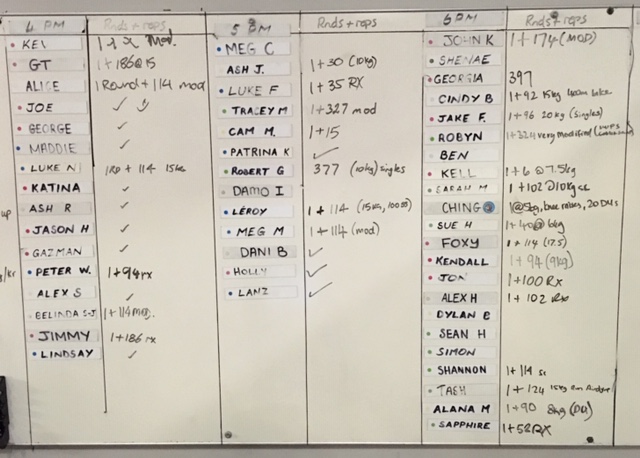 4 PM Rnds + reps
KEV 1 x 2 Mod.
GT 1+186@15
ALICE 1 Round + 114 mod
JOE ✓
GEORGE ✓
MADDIE ✓
LUKE N 1RD + 114 15kg
KATINA ✓
up ASH R ✓
JASON H ✓
GAZMAN ✓
PETER W. 1+94rx
ALEY S ✓
BELINDA S-J 1+114mod.
JIMMY 1+186 rx
LINDSAY ✓
5 PM Rnds + reps
MEG C
ASH J. 1+30 (10kg)
LUKE F 1+35 RX
TRACEY M 1+327 mod
CAM M. 1+15
PATRINA K ✓
ROBERT G 377 (10kg) singles
DAMO I
LEROY 1+114 (15KG, 100
MEG M 1+114 (mod)
DANI B ✓
HOLLY ✓
LANZ ✓
6 PM Rnds + reps
JOHN K 1+174 (MOD)
SHENAE
GEORGIA 397
CINDY B 1+92 15kg
JAKE F. 1+96 20kg (singles)
ROBYN very modified
BEN
KELL 1+6 @ 7.5kg
SARAH M 1+102 @10kg sc
CHING 1@5kg, 20 DUs
SUE H 1+40@6kg
FOXY 1+114 (17.5)
KENDALL 1+94 (9kg)
JON 1+100 Rx
ALEX H 1+102 Rx
DYLAN B
SEAN H
SIMON
SHANNON 1+114 sc
TASH 1+124 15kg
ALANA M 1+90 8kg (DU)
SAPPHIRE 1+52 RX